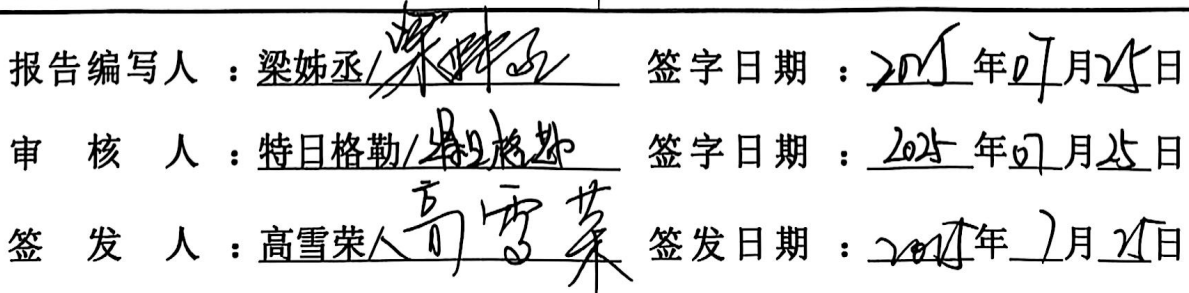 报告编写人：梁姊丞/梁姊丞 签字日期：2025年07月25日
审核人：特日格勒/特日格勒 签字日期：2025年07月25日
签发人：高雪荣/高雪荣 签发日期：2025年7月25日